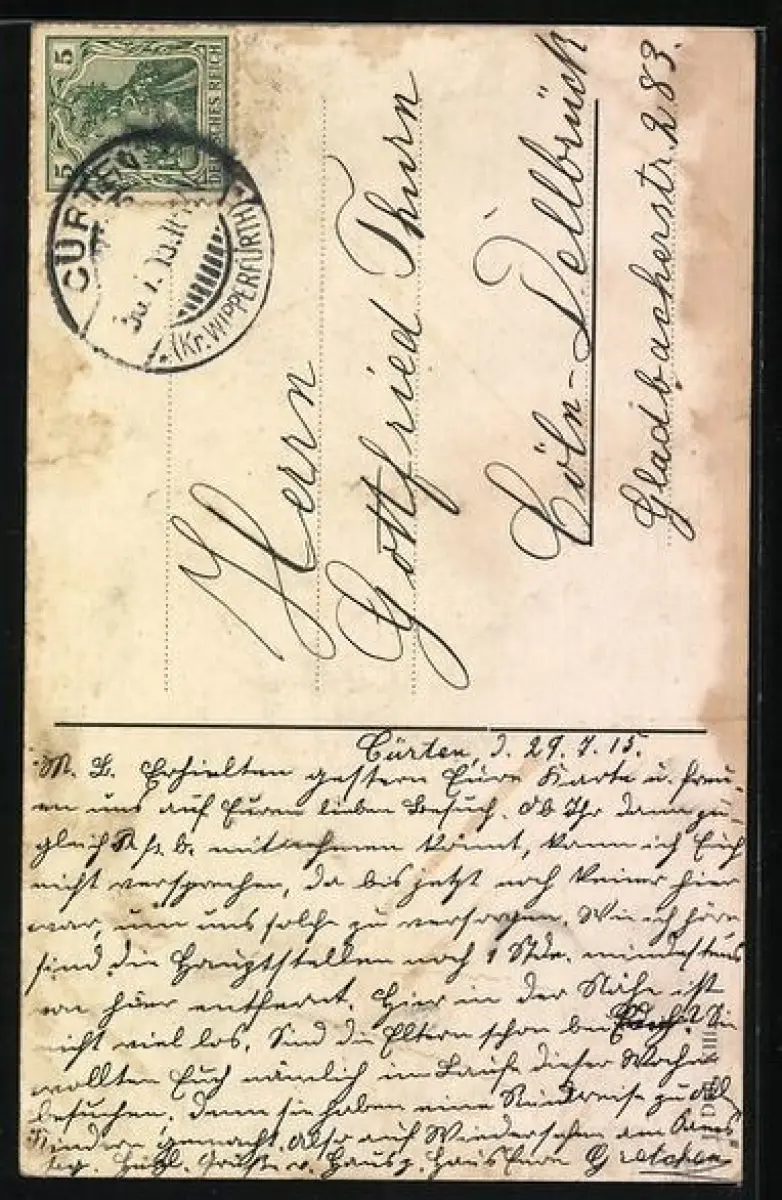 5 5
DEUTSCHES REICH
CÜRTEN
(Kr. WIPPERFÜRTH)
Herrn
Gottfried Thurn
Cöln-Dellbrück
Gladbacherstr. 283.
Cürten, d. 29.7.15.
M. L. Erhielten gestern Eure Karte u. freu-
en uns auf Euren lieben Besuch. Ob Ihr dann zu-
gleich mitnehmen könnt, kann ich Euch
nicht versprechen, da bis jetzt noch keiner hier
war, um uns solche zu versorgen. Wie ich höre
sind die Hauptstellen noch 1 Stde. mindestens
von hier entfernt. Hier in der Nähe ist
nicht viel los. Sind die Eltern schon bei Euch? Sie
wollten Euch nämlich im Laufe dieser Woche
besuchen. Denn sie haben eine Rundreise zu all
Kindern gemacht. Also auf Wiedersehen am Sams-
tag. Hzl. Grüße v. Haus z. Haus Eure Gretchen